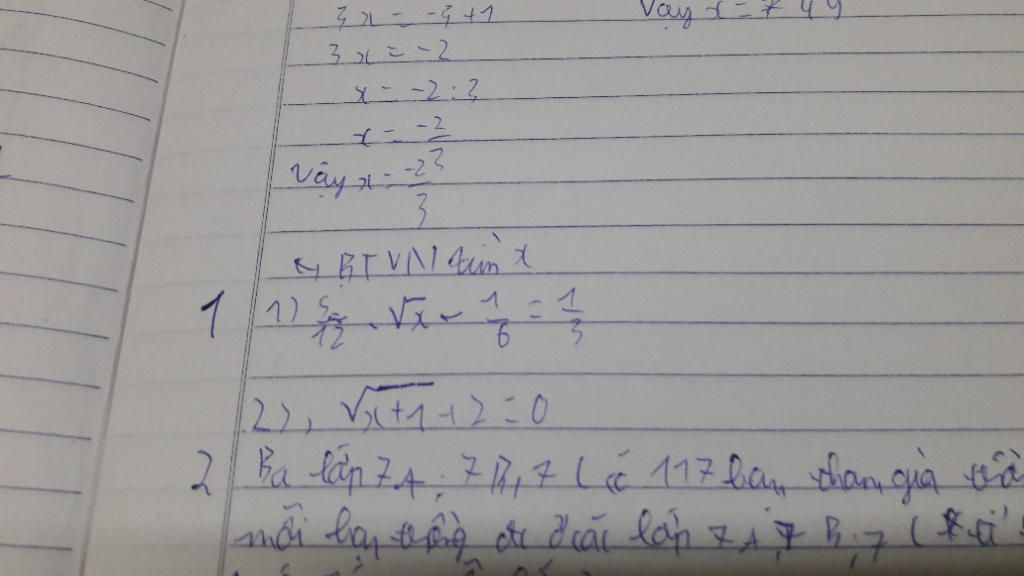 3x = -3+1
Vậy x = 7 49
3x = -2
x = -2:3
x = -2/3
Vậy x = -2/3
BTVN tìm x
1 1) 5/12 . √x - 1/6 = 1/3
2), √x+1 +2 = 0
2 Ba lớp 7A; 7B, 7C có 117 bạn tham gia
mỗi bạn trồng đc ở các lớp 7A, 7B, 7C